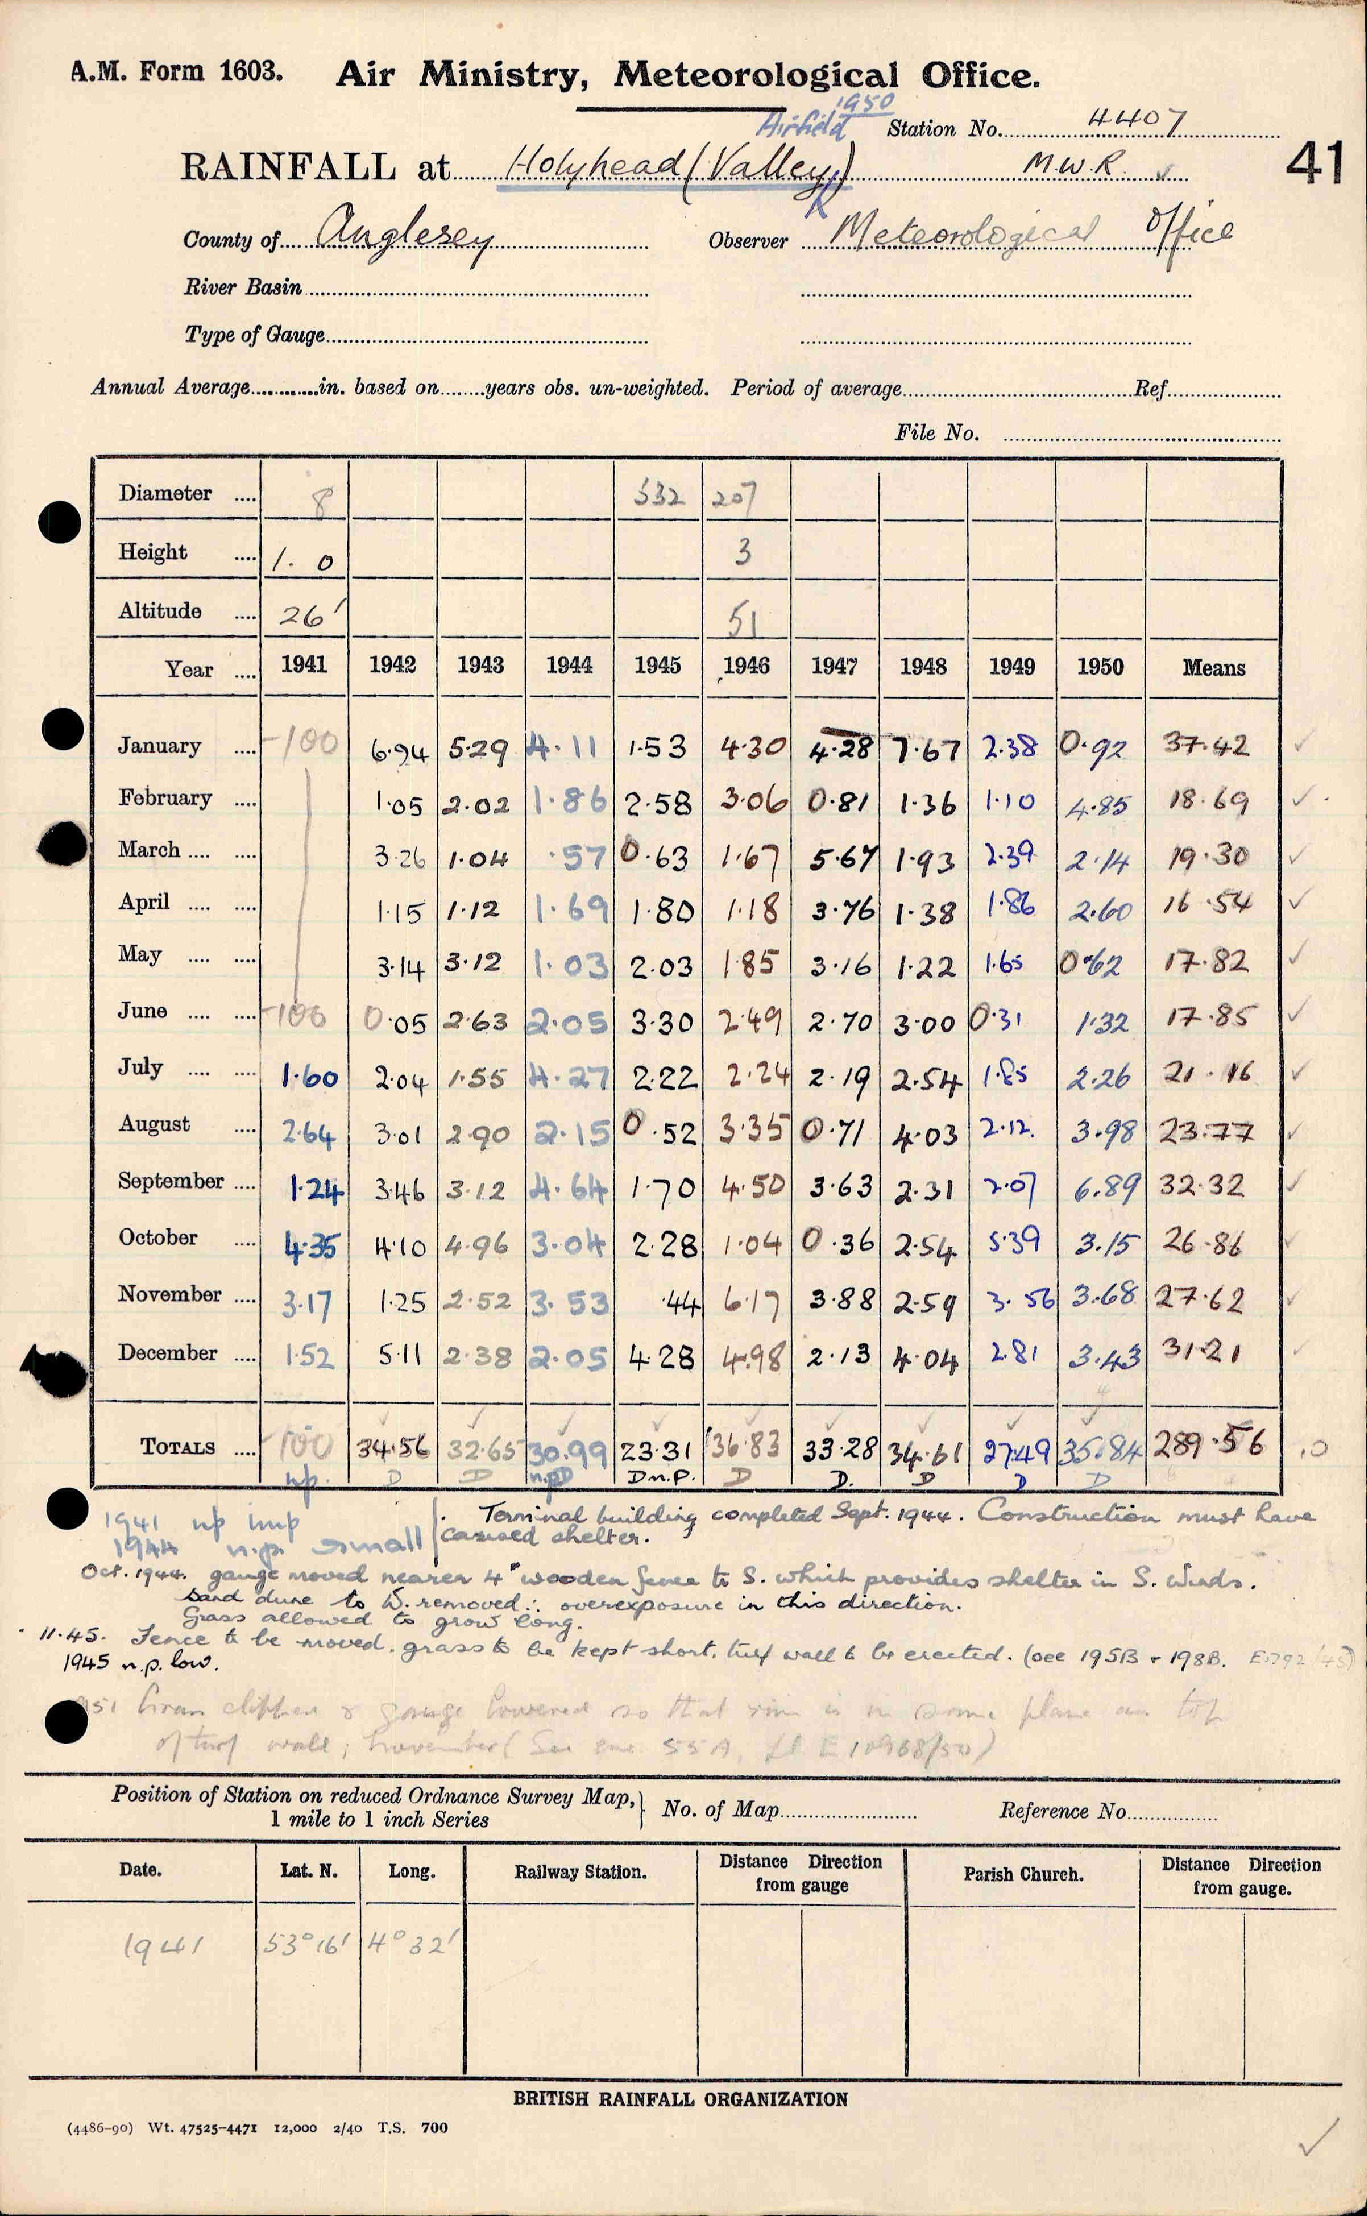 A.M. Form 1603. Air Ministry, Meteorological Office.
1950
Airfield Station No. 4407
RAINFALL at Holyhead (Valley) M.W.R. ✓ 41
County of Anglesey Observer Meteorological Office
River Basin
Type of Gauge
Annual Average in. based on years obs. un-weighted. Period of average Ref.
File No.
Diameter 8 532 207
Height 1. 0 3
Altitude 26' 51
Year 1941 1942 1943 1944 1945 1946 1947 1948 1949 1950 Means
January -100 6.94 5.29 4.11 1.53 4.30 4.28 7.67 2.38 0.92 37.42 ✓
February 1.05 2.02 1.86 2.58 3.06 0.81 1.36 1.10 4.85 18.69 ✓
March 3.26 1.04 .57 0.63 1.67 5.67 1.93 2.39 2.14 19.30 ✓
April 1.15 1.12 1.69 1.80 1.18 3.76 1.38 1.86 2.60 16.54 ✓
May 3.14 3.12 1.03 2.03 1.85 3.16 1.22 1.65 0.62 17.82 ✓
June -100 0.05 2.63 2.05 3.30 2.49 2.70 3.00 0.31 1.32 17.85 ✓
July 1.60 2.04 1.55 4.27 2.22 2.24 2.19 2.54 1.85 2.26 21.16 ✓
August 2.64 3.01 2.90 2.15 0.52 3.35 0.71 4.03 2.12 3.98 23.77 ✓
September 1.24 3.46 3.12 4.64 1.70 4.50 3.63 2.31 2.07 6.89 32.32 ✓
October 4.35 4.10 4.96 3.04 2.28 1.04 0.36 2.54 5.39 3.15 26.86 ✓
November 3.17 1.25 2.52 3.53 .44 6.17 3.88 2.59 3.56 3.68 27.62 ✓
December 1.52 5.11 2.38 2.05 4.28 4.98 2.13 4.04 2.81 3.43 31.21 ✓
TOTALS -100 34.56 32.65 30.99 23.31 36.83 33.28 34.61 27.49 35.84 289.56 .0
np. D D n.p D D n.p. D D. D D D
1941 np imp
1944 n.p. small
Terminal building completed Sept. 1944. Construction must have
caused shelter.
Oct. 1944. gauge moved nearer 4' wooden fence to S. which provides shelter in S. Winds.
Sand dune to W. removed ∴ overexposure in this direction.
Grass allowed to grow long.
11.45. Fence to be moved. grass to be kept short, turf wall to be erected. (see 195B + 198B.
1945 n.p. low.
1951 Grass clipped & gauge lowered so that rim is in same plane as top
of turf wall; November (See enc. 55A,
Position of Station on reduced Ordnance Survey Map, 1 mile to 1 inch Series } No. of Map Reference No.
Date. Lat. N. Long. Railway Station. Distance Direction from gauge Parish Church. Distance Direction from gauge.
1941 53°16' 4°32'
BRITISH RAINFALL ORGANIZATION
(4486-90) Wt. 47525-4471 12,000 2/40 T.S. 700
✓